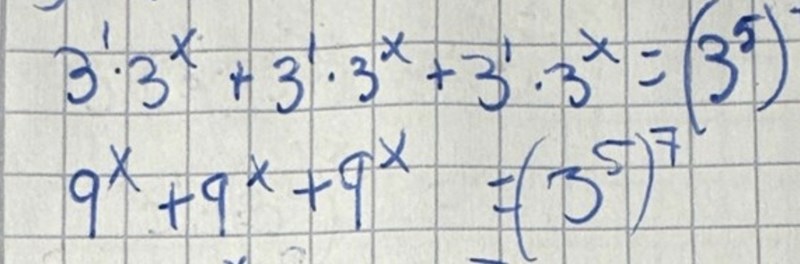 3¹·3ˣ + 3¹·3ˣ + 3¹·3ˣ = (3⁵)
9ˣ + 9ˣ + 9ˣ = (3⁵)⁷